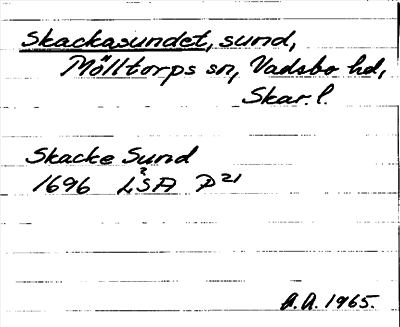 Skackasundet, sund,
Mölltorps sn, Vadsbo hd,
Skar. l.
Skacke Sund
1696 LSA P21
A.A. 1965.